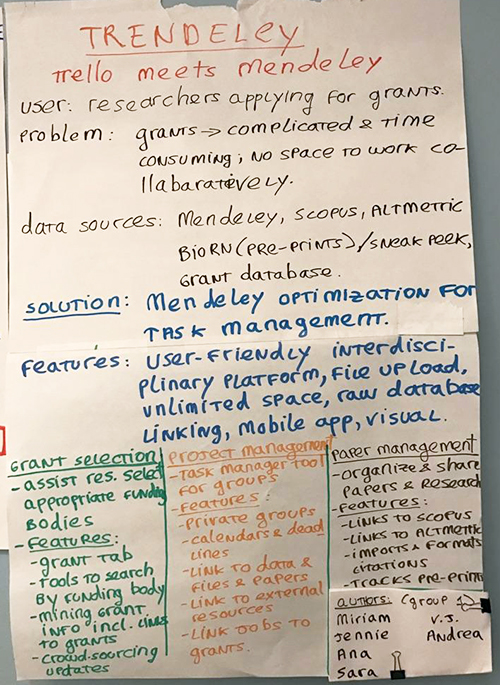 TRENDELEY
Trello meets Mendeley
user: researchers applying for grants.
problem: grants → complicated & time
consuming; no space to work co-
llabaratively.
data sources: Mendeley, Scopus, Altmetric
BioRN (pre-prints)/sneak peek,
grant database.
solution: Mendeley optimization for
task management.
Features: user-friendly interdisci-
plinary platform, file upload,
unlimited space, raw database
linking, mobile app, visual.
grant selection
- assist res. select
appropriate funding
bodies
- Features:
- grant tab
- tools to search
by funding body
- mining grant
info incl. links
to grants
- crowd-sourcing
updates
project management
- task manager tool
for groups
- Features:
- private groups
- calendars & dead
lines
- link to data &
files & papers
- link to external
resources
- link jobs to
grants.
paper management
- organize & share
papers & research
- Features:
- links to Scopus
- links to Altmetric
- imports & formats
citations
- tracks pre-prints
authors: (group 1)
Miriam V.J.
Jennie Andrea
Ana
Sara